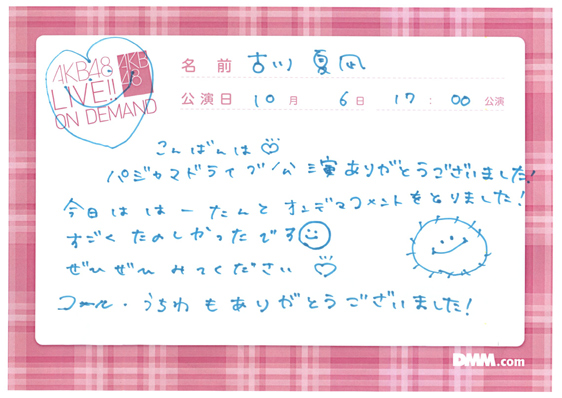 AKB48
LIVE!!
ON DEMAND
AKB
48
名前 古川 夏凪
公演日 10月 6日 17:00 公演
こんばんは♡
パジャマドライブ公演ありがとうございました!
今日は はーたんと オンデマコメントをとりました!
すごく たのしかったです
ぜひぜひ みてください ♡
コール・うちわ も ありがとうございました!
DMM.com